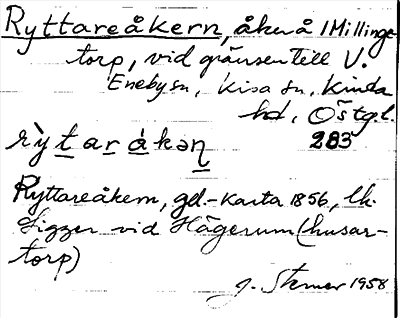 Ryttareåkern, åker å 1 Millinge
torp, vid gränsen till V.
Eneby sn, Kisa sn, Kinda
hd, Östgl.
283
rỳtarákəṇ
Ryttareåkern, gd.-karta 1856, lk.
Ligger vid Hägerum (husar-
torp)
1958